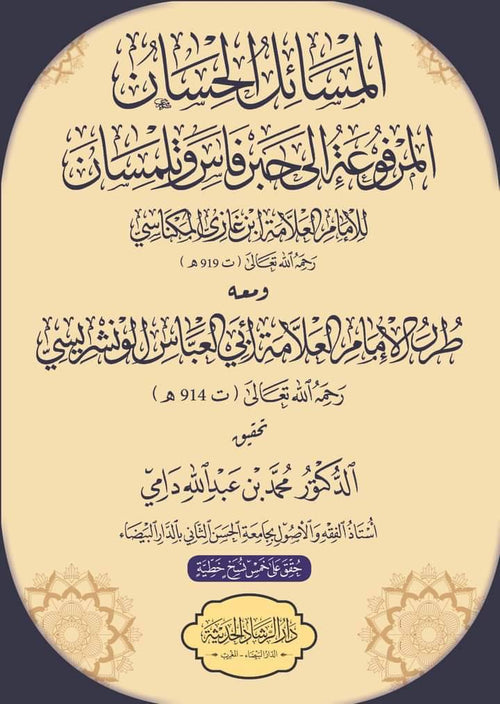 المسائل الحسان
المرفوعة إلى حبر فاس وتلمسان
للإمام العلامة ابن غازي المكناسي
رحمه الله تعالى (ت 919 هـ)
ومعه
طرر الإمام العلامة أبي العباس الونشريسي
رحمه الله تعالى (ت 914 هـ)
تحقيق
الدكتور محمد بن عبد الله دامي
أستاذ الفقه والأصول بجامعة الحسن الثاني بالدار البيضاء
حقق على خمس نسخ خطية
دار الرشاد الحديثة
الدار البيضاء - المغرب